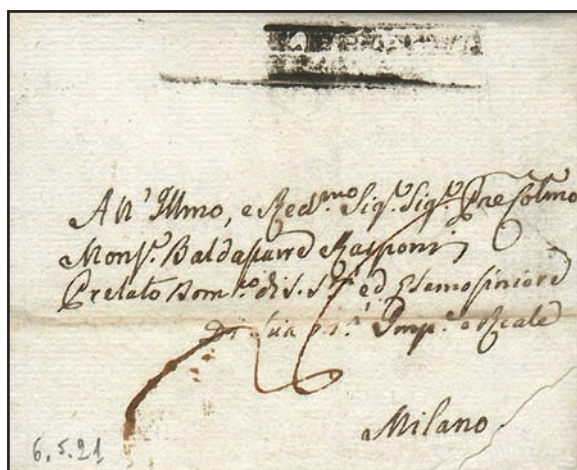 All' Illmo, e Red.mo Sig.r Sig.r Pre Colmo
Mons.r Baldassarre Rasponi
Prelato Dom.co di S. S.tà ed Elemosiniere
Di Sua Imp.e e Reale
Milano
6.5.21